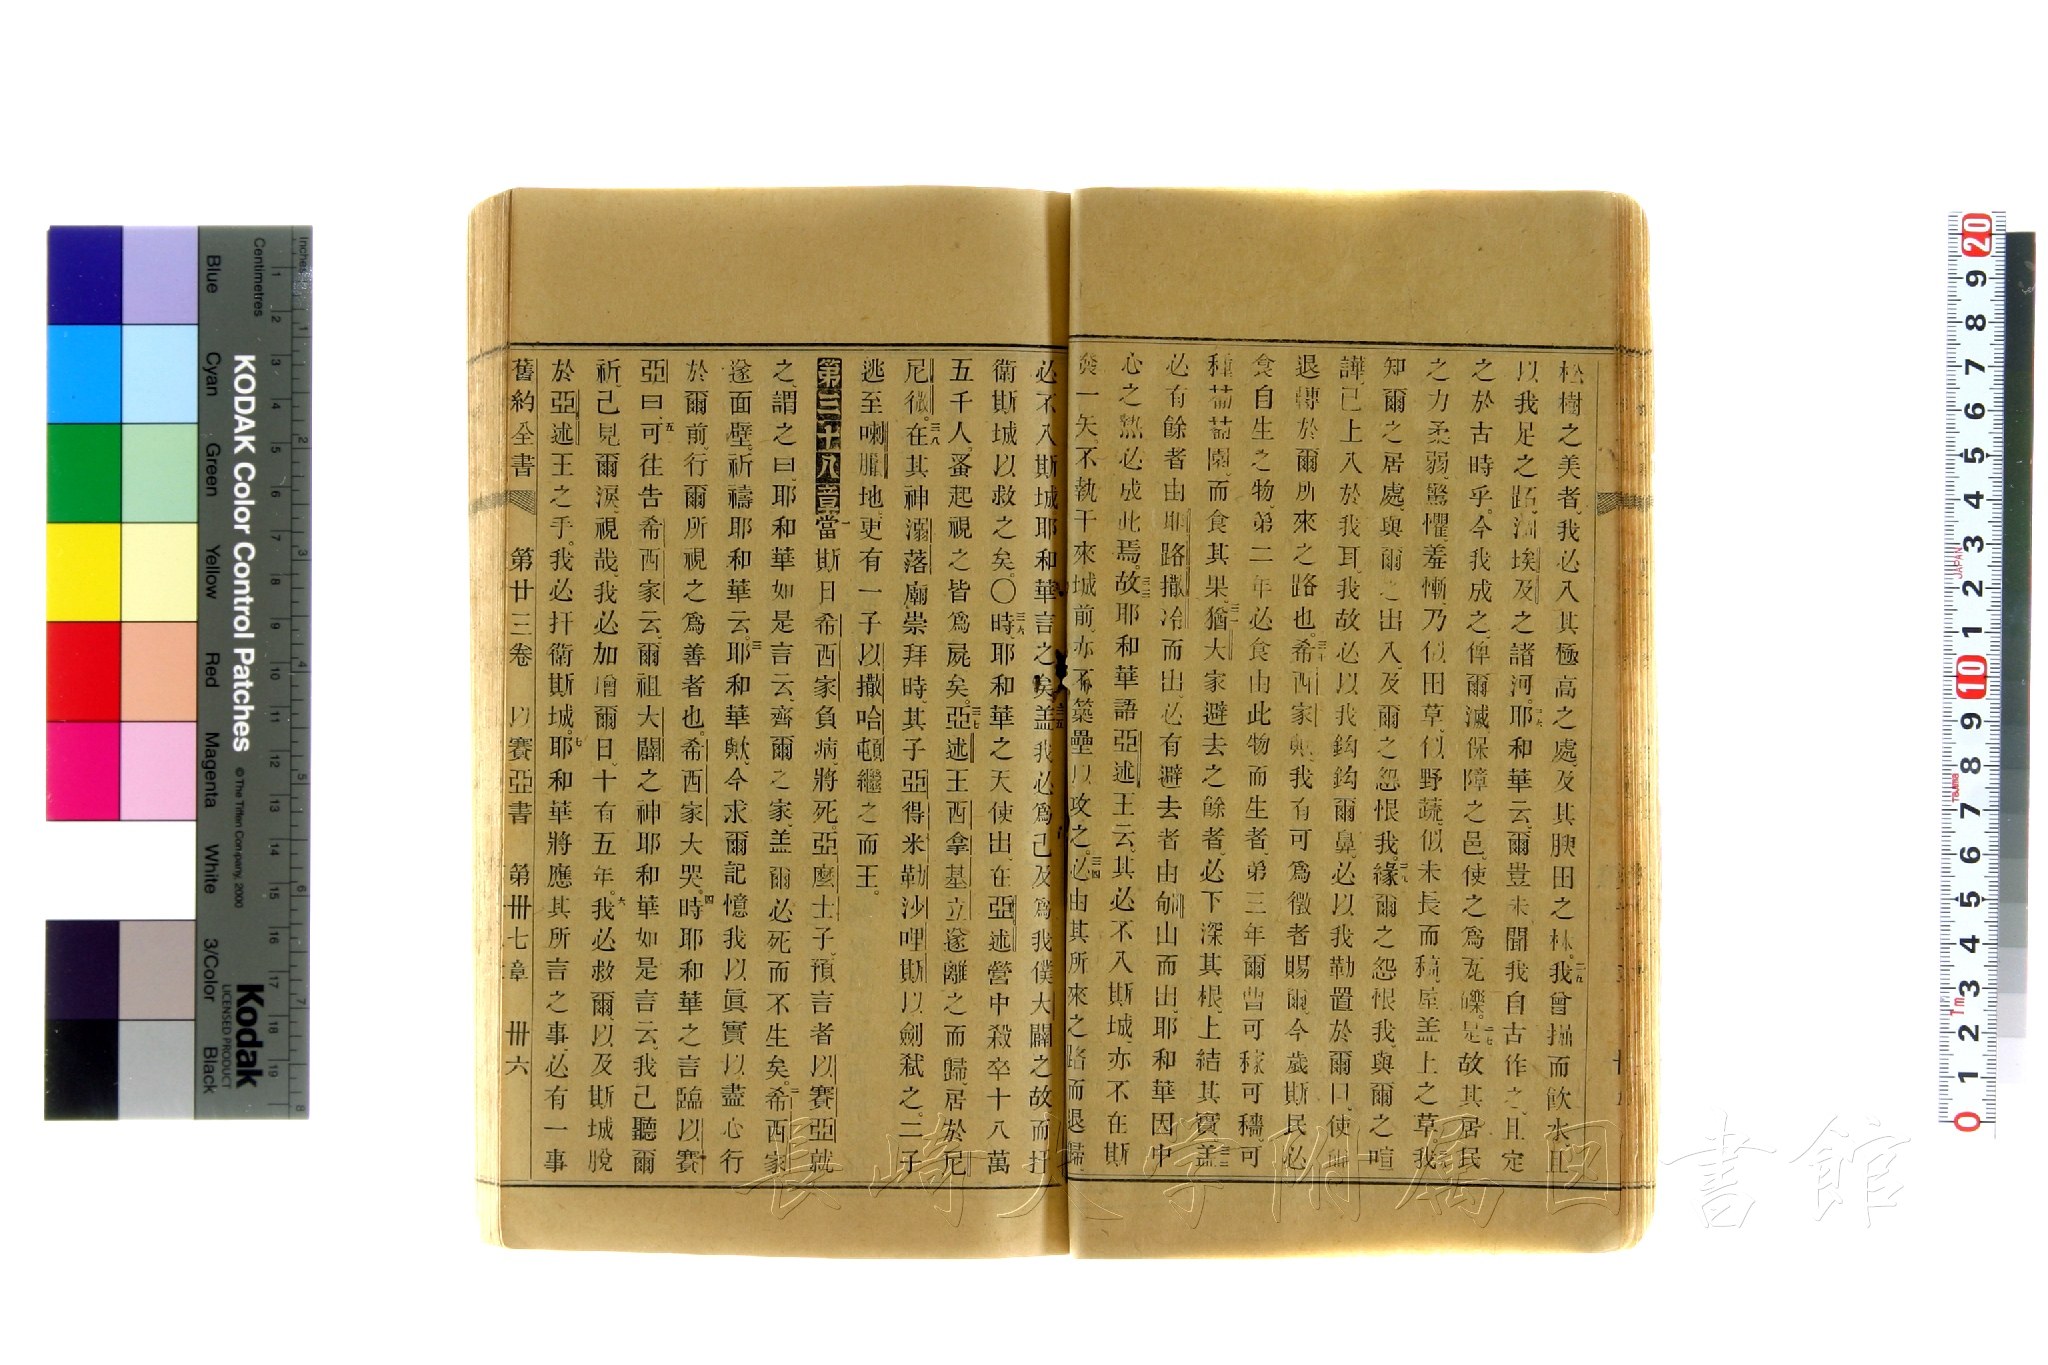 松樹之美者、我必入其極高之處、及其腴田之林。二五我曾掘而飲水、且
以我足之跖、涸埃及之諸河。二六耶和華云、爾豈未聞我自古作之、且定
之於古時乎。今我成之、俾爾滅保障之邑、使之爲瓦礫。二七是故其居民
之力柔弱、驚懼、羞慚、乃似田草、似野蔬、似未長而稿、屋葢上之草。我
知爾之居處、與爾之出入、及爾之怨恨我。二八緣爾之怨恨我、與爾之喧
譁、已上入於我耳、我故必以我鈎鈎爾鼻、必以我勒置於爾口、使爾
退轉於爾所來之路也。三十希西家歟、我有可爲徵者賜爾、今歲斯民必
食自生之物、弟二年必食由此物而生者、弟三年爾曹可稼可穡可
種葡萄園、而食其果。三一猶大家避去之餘者、必下深其根、上結其實。三二葢
必有餘者由耶路撒冷而出、必有避去者由郇山而出、耶和華因中
心之熱必成此焉。三三故耶和華語亞述王云、其必不入斯城、亦不在斯
發一矢、不執干來城前、亦不築壘以攻之。三四必由其所來之路而退歸、
必不入斯城、耶和華言之矣。三五葢我必爲己及爲我僕大闢之故而扞
衛斯城以救之矣。〇三六時、耶和華之天使出、在亞述營中殺卒十八萬
五千人。蚤起視之皆爲屍矣。三七亞述王西拿基立遂離之而歸、居於尼
尼微。三八在其神溺落廟崇拜時、其子亞得米勒沙哩斯以劍弒之。二子
逃至喇臘地、更有一子以撒哈頓繼之而王。
第三十八章 一當斯日希西家負病、將死。亞麼士子、預言者以賽亞就
之、謂之曰、耶和華如是言云、齊爾之家、葢爾必死而不生矣。二希西家
遂面壁、祈禱耶和華云。三耶和華歟、今求爾記憶我以眞實以盡心行
於爾前、行爾所視之爲善者也。希西家大哭。四時耶和華之言臨以賽
亞曰、五可往告希西家云、爾祖大闢之神耶和華如是言云、我已聽爾
祈、已見爾淚、視哉、我必加增爾日、十有五年。六我必救爾、以及斯城脫
於亞述王之手。我必扞衛斯城。七耶和華將應其所言之事必有一事
舊約全書 第廿三卷 以賽亞書 第卅七章 卅六
KODAK Color Control Patches
© The Tiffen Company, 2000
Kodak
LICENSED PRODUCT
Inches
Centimetres
Blue
Cyan
Green
Yellow
Red
Magenta
White
3/Color
Black
長崎大学附属図書館